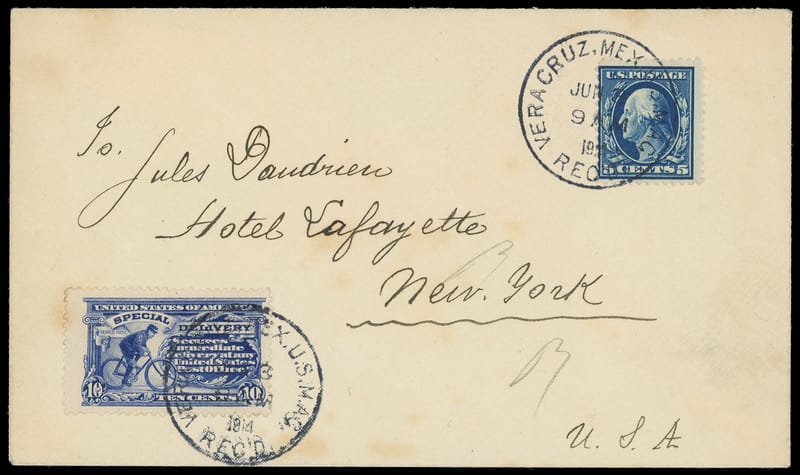 VERACRUZ, MEX
JUN
9 AM
19
REC'D
U.S. POSTAGE
5 CENTS 5
To.
Jules Daudrien
Hotel Lafayette
New. York
UNITED STATES OF AMERICA
SPECIAL DELIVERY
Secures
immediate
delivery at any
United States
Post Office
10 TEN CENTS 10
VER EX, U.S.M.AG.
8
1914
REC'D.
U. S. A